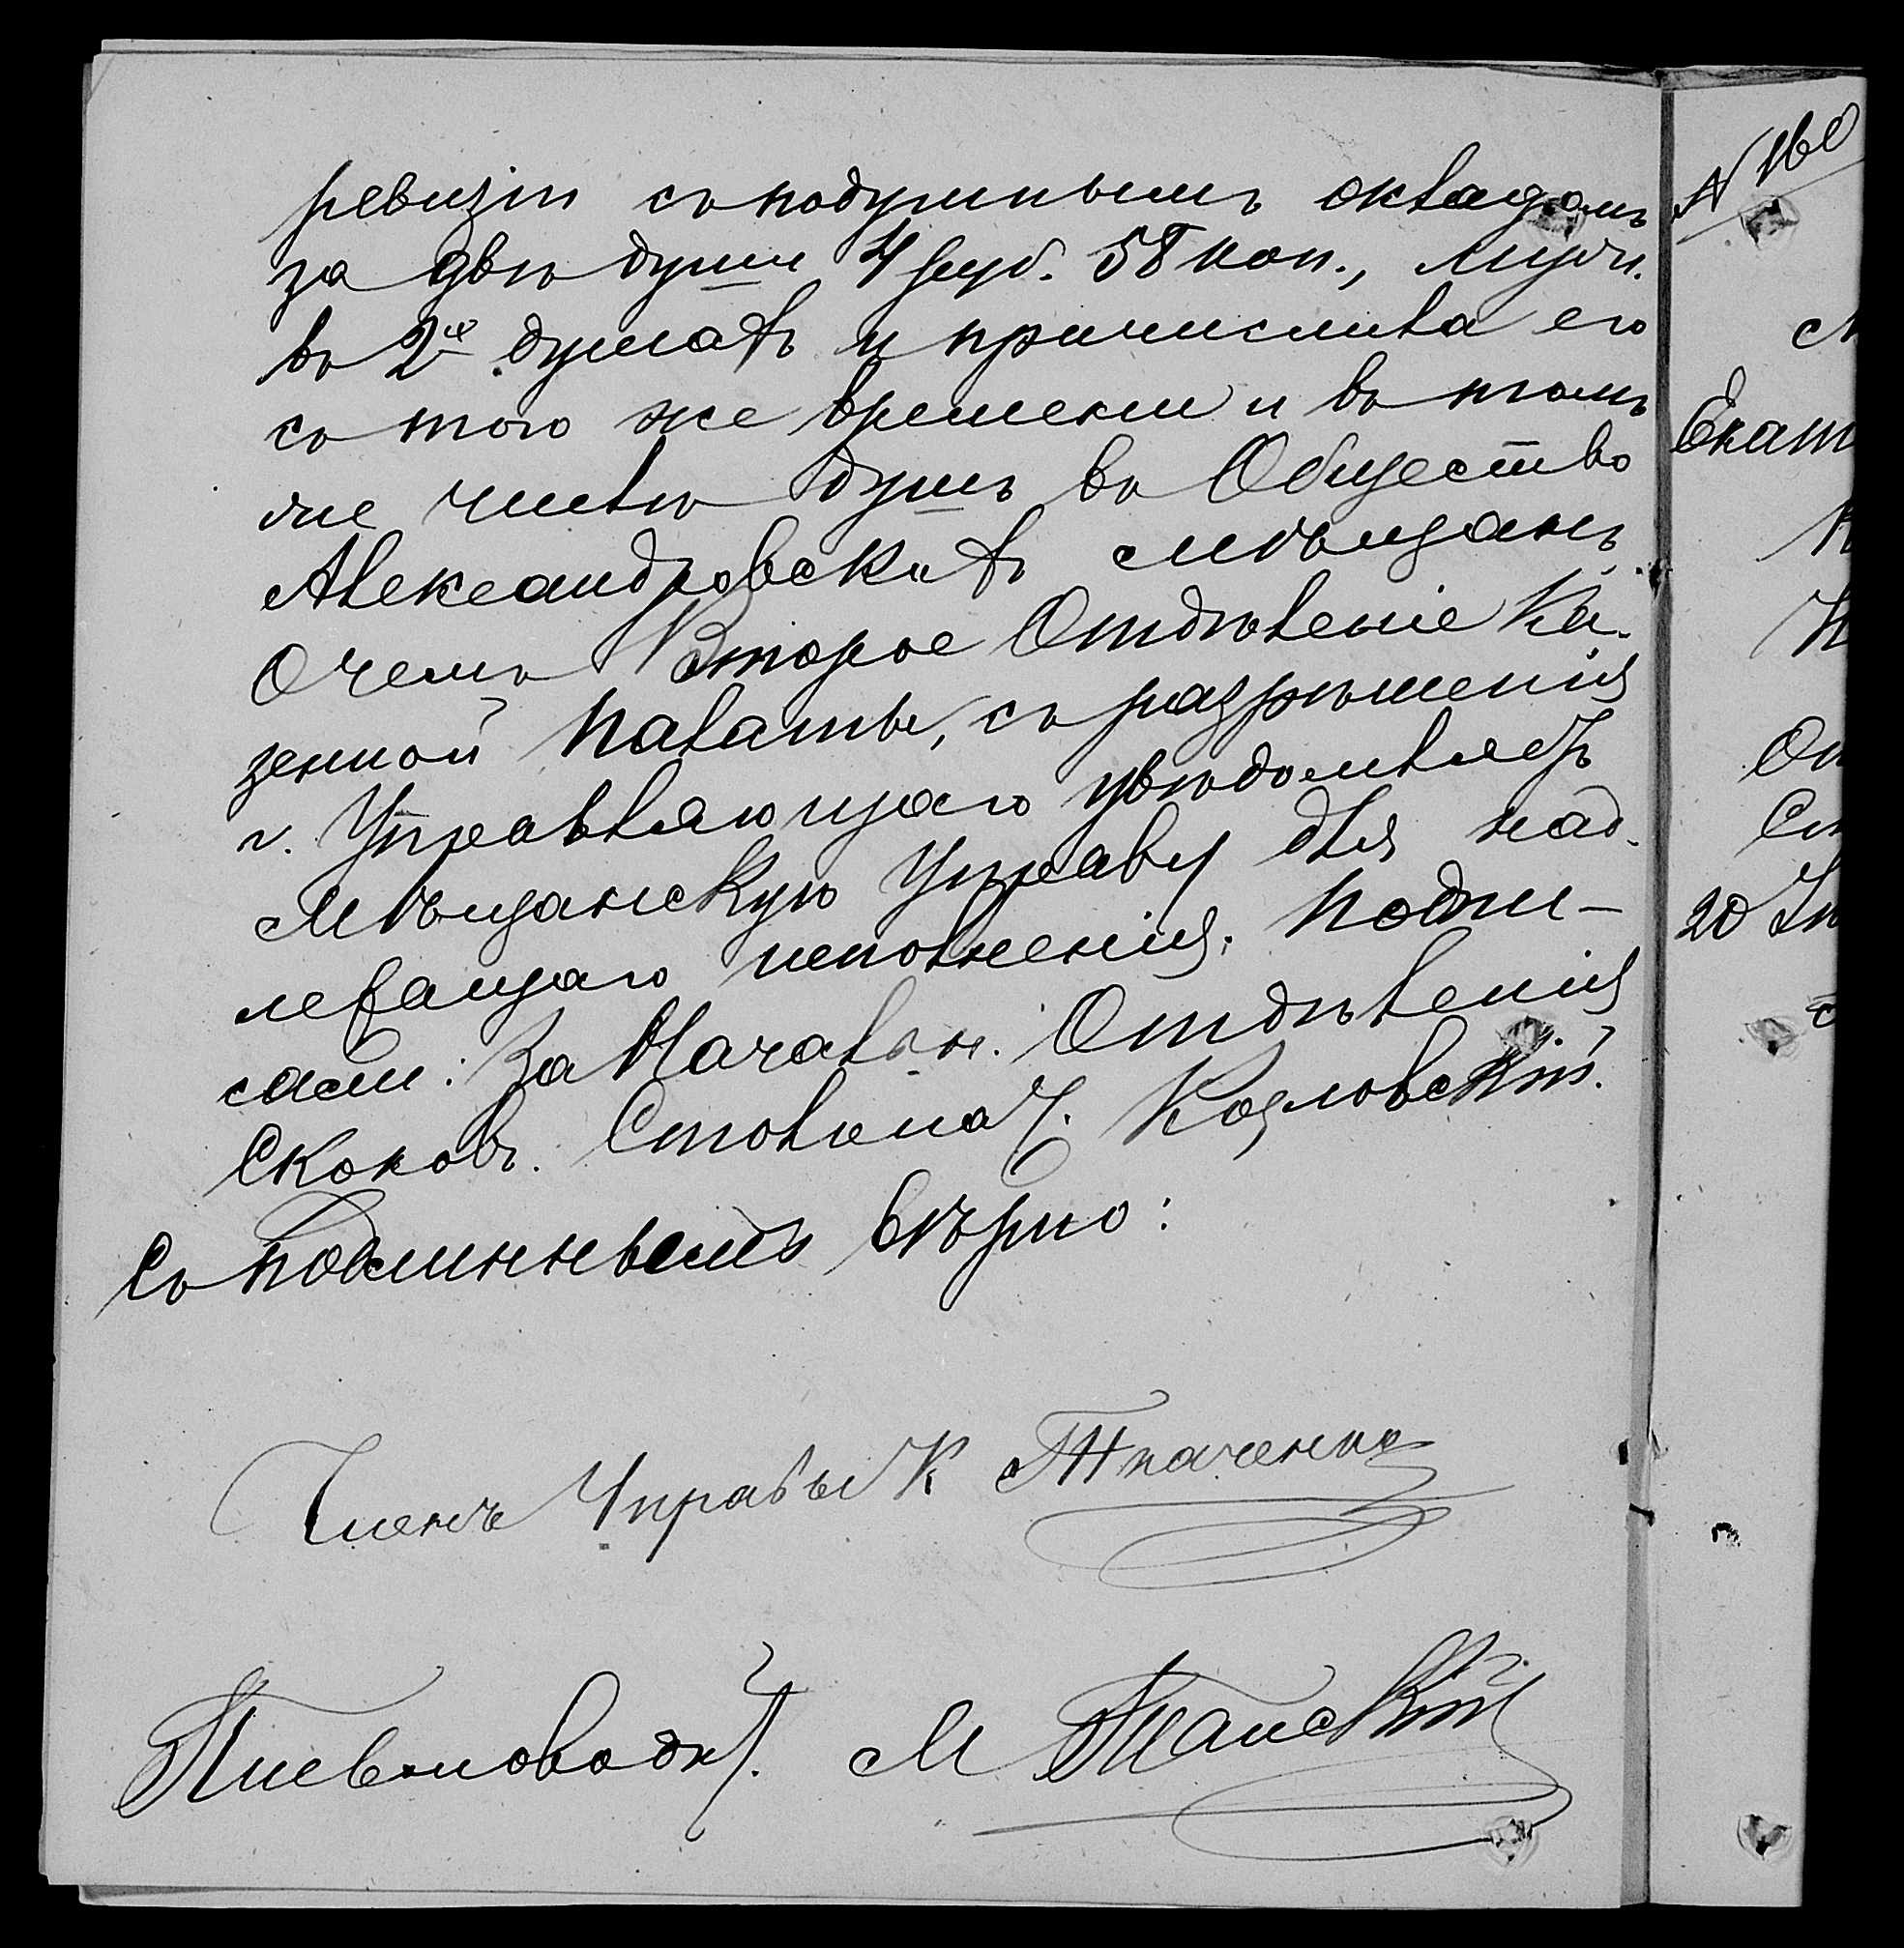 ревизіи съ подушнымъ окладомъ
за двѣ души 4 руб. 58 коп., муж.
въ 2х душахъ и причислила его
съ того же времени и въ томъ
же числѣ душъ въ Общество
Александровскихъ мѣщанъ
О чемъ Второе Отдѣленіе Ка-
зенной Палаты, съ разрѣшенія
г. Управляющаго увѣдомляетъ
Мѣщанскую Управу для над-
лежащаго исполненія. Подпи-
сали: За Начальн. Отдѣленія
Скоковъ. Столонач. Козловскій.
Съ подлиннымъ вѣрно:
Членъ Управы К Ткаченко
Письмоводит. М
N 160
Екат
20